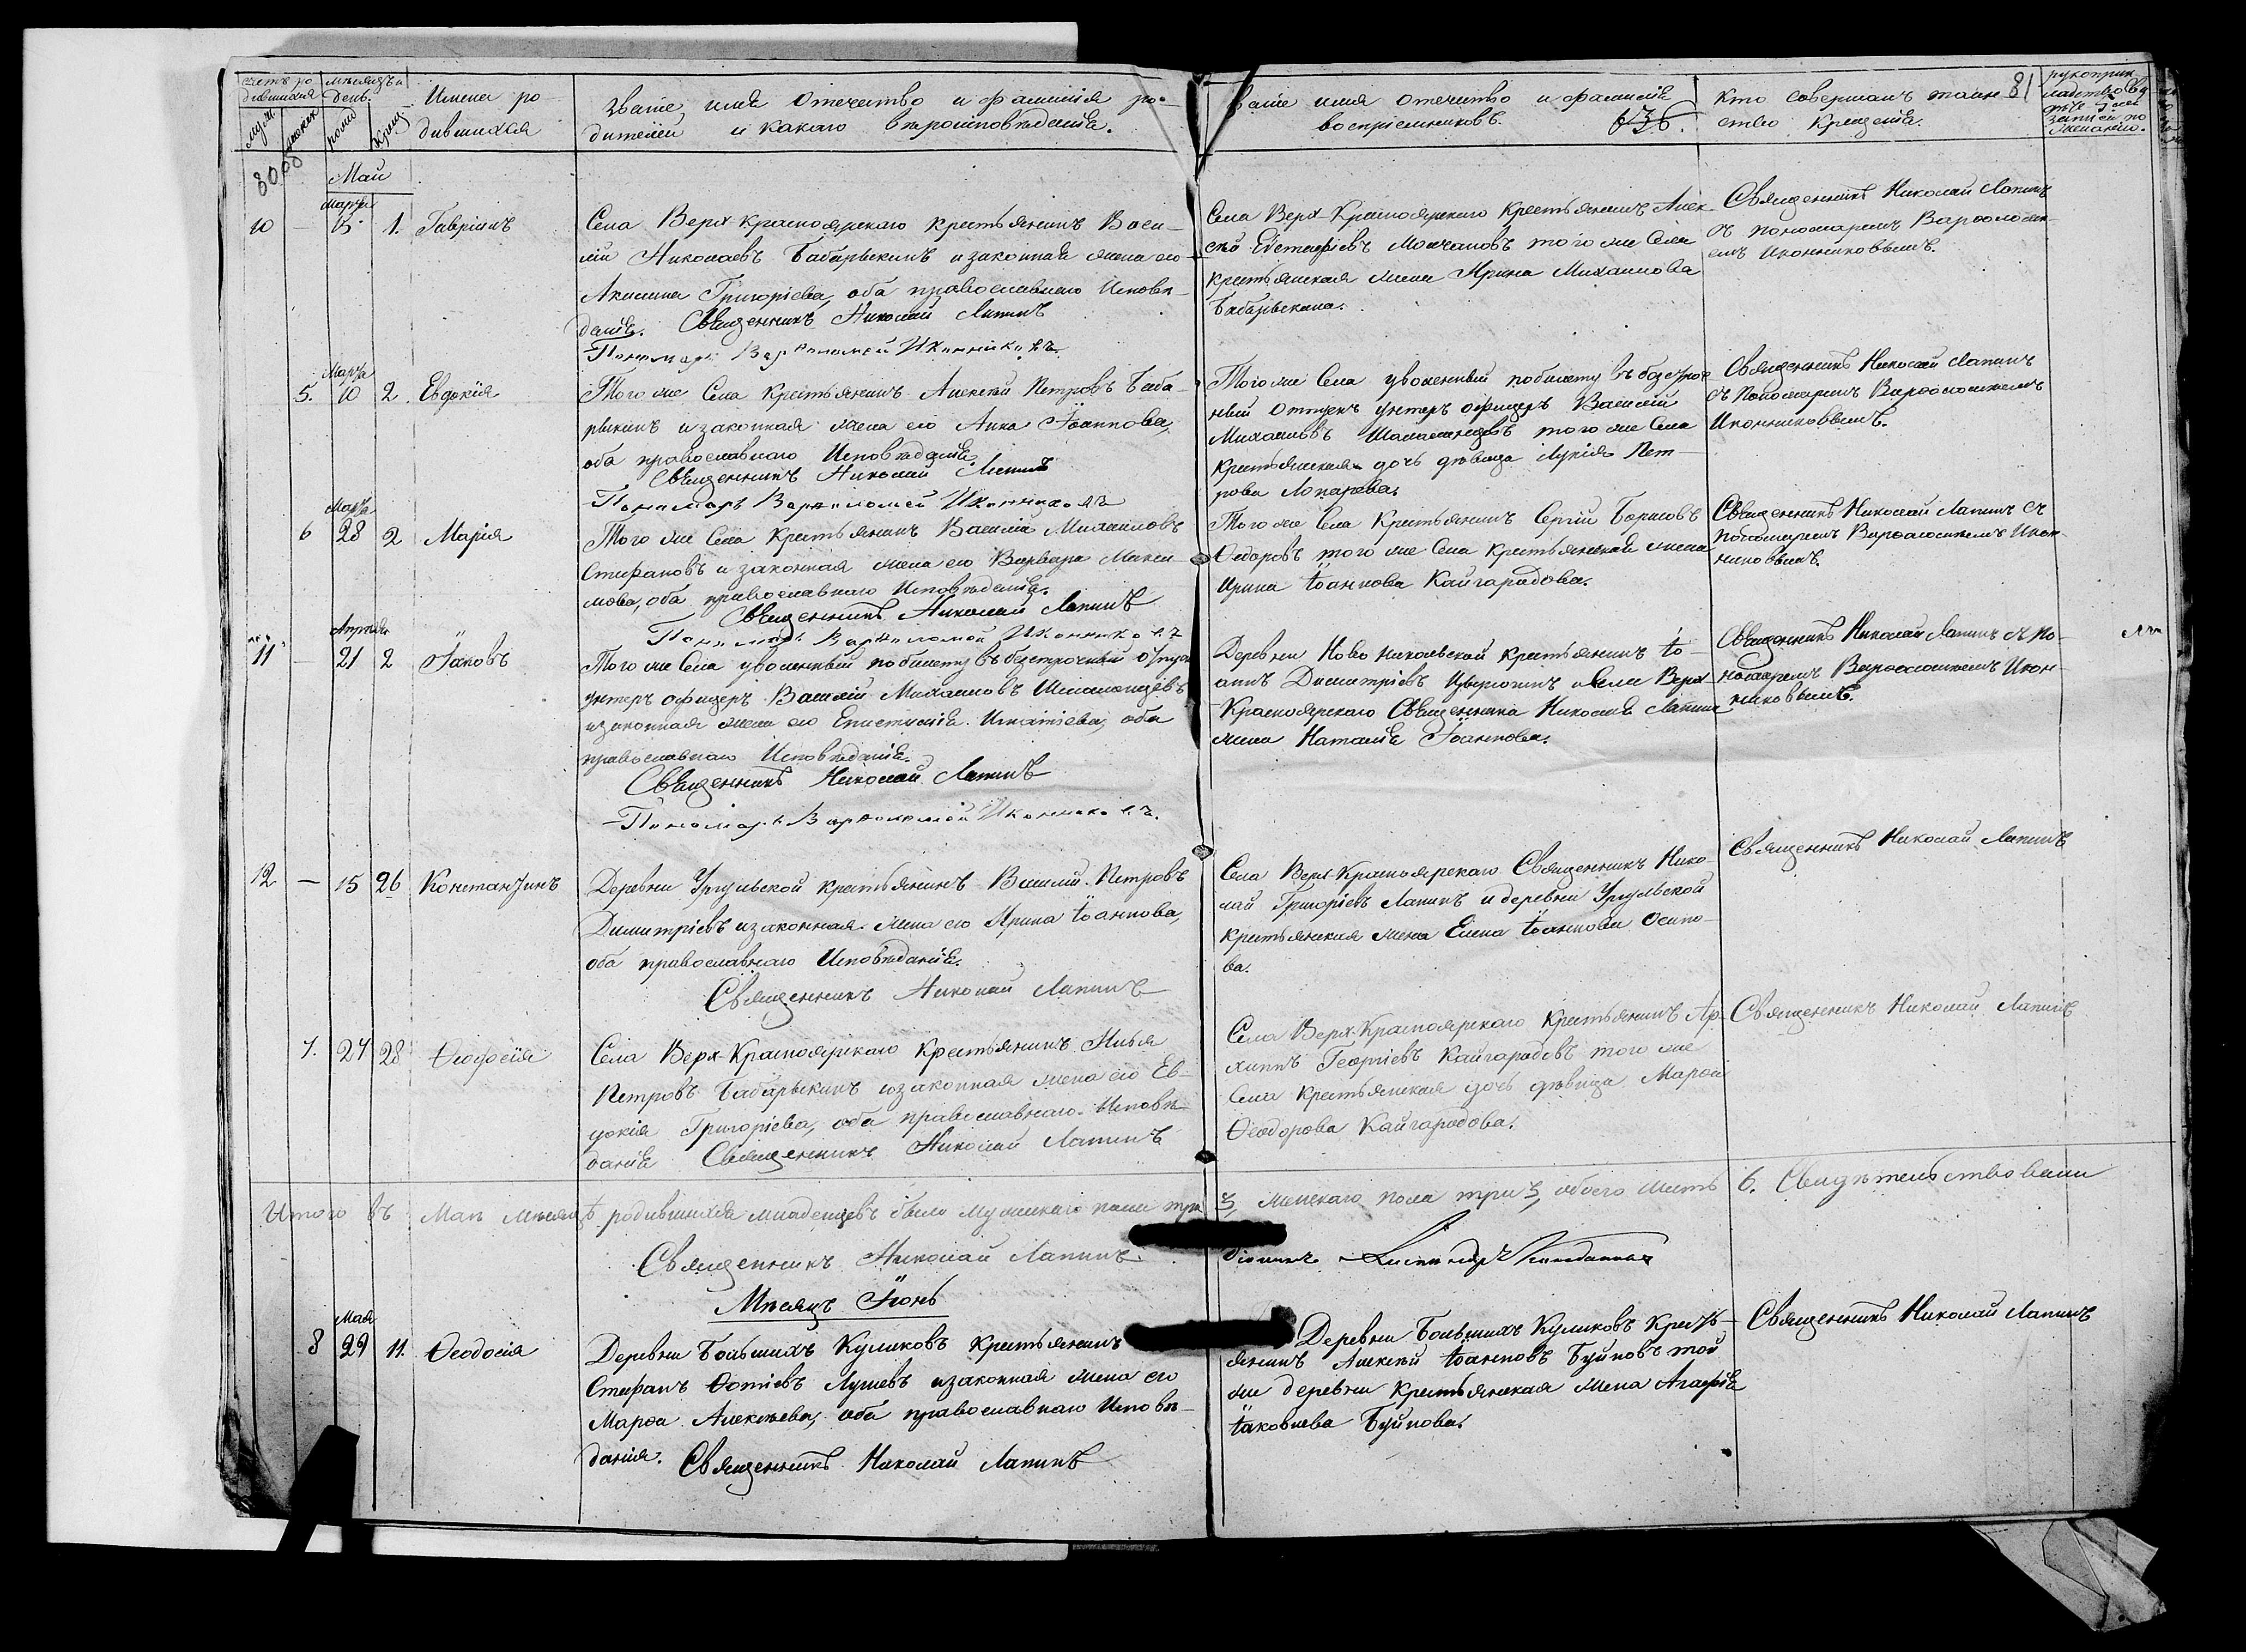 счетъ ро- мѣсяцъ и
дившихся день. Имена ро- Званіе имя Отечество и фамилія ро-
муж. женск рожд. крещ. дившихся дителей и какаго вѣроисповѣданія.
Званіе имя отечество и фамилія
воспріемниковъ. 636.
Кто совершалъ таин- 81
ство Крещенія.
рукоприк-
ладство
записи по
желанію.
80 Май
Марта
10 — 15 1. Гавріилъ
Села Верх-Красноярскаго крестьянинъ Васи-
лій Николаевъ Бабарыкинъ и законная жена его
Акилина Григоріева, оба православнаго Исповѣ-
данія. Священникъ Николай Лапинъ
Пономарь Варфоломей Иконниковъ.
Села Верх-Красноярскаго Крестьянинъ Алек-
сѣй Евстафіевъ Молчановъ того же Села
крестьянская жена Ирина Михаилова
Бабарыкина.
Священникъ Николай Лапинъ
съ пономаремъ Варфоломе-
емъ Иконниковымъ.
Марта
5. 10 2 Евдокія
Того же Села Крестьянинъ Алексѣй Петровъ Баба-
рыкинъ и законная жена его Анна Іоаннова,
оба православнаго Исповѣданія.
Священникъ Николай Лапинъ
Пономарь Варфоломей Иконниковъ
Того же Села уволенный по билету въ безсроч-
ный отпускъ унтеръ офицеръ Василій
Михаиловъ того же Села
Крестьянская дочь дѣвица Лукія Пет-
рова Лопарева.
Священникъ Николай Лапинъ
съ Пономаремъ Варфоломеемъ
Иконниковымъ.
Марта
6 28 2 Марія
Того же Села Крестьянинъ Василій Михаиловъ
Стефановъ и законная жена его Варвара Макси-
мова, оба православнаго Исповѣданія.
Священникъ Николай Лапинъ
Пономарь Варфоломей Иконниковъ
Того же Села Крестьянинъ Сергій Борисовъ
Ѳедоровъ того же Села крестьянская жена
Ирина Іоаннова Кайгародова.
Священникъ Николай Лапинъ съ
пономаремъ Варфоломеемъ Икон-
никовымъ.
Апрѣля
11 — 21 2 Іаковъ
Того же Села уволенный по билету въ безсрочный отпускъ
унтеръ офицеръ Василій Михаиловъ
и законная жена его Епистимія Игнатіева, оба
православнаго Исповѣданія.
Священникъ Николай Лапинъ
Пономарь Варфоломей Иконниковъ.
Деревни Ново Никольской крестьянинъ Іо-
аннъ Димитріевъ и Села Верх-
Красноярскаго Священника Николая Лапина
жена Наталія Іоаннова.
Священникъ Николай Лапинъ съ по-
номаремъ Варфоломеемъ Икон-
никовымъ.
12 — 15 26 Константинъ
Деревни Ургульской крестьянинъ Василій Петровъ
Димитріевъ и законная жена его Ирина Іоаннова,
оба православнаго Исповѣданія.
Священникъ Николай Лапинъ
Села Верх-Красноярскаго Священникъ Нико-
лай Григоріевъ Лапинъ и деревни Ургульской
крестьянская жена Елена Іоаннова Осипо-
ва.
Священникъ Николай Лапинъ
7. 27 28 Ѳеодосія
Села Верх-Красноярскаго Крестьянинъ Илья
Петровъ Бабарыкинъ и законная жена его Ев-
докія Григоріева, оба православнаго Исповѣ-
данія Священникъ Николай Лапинъ
Села Верх-Красноярскаго Крестьянинъ Ар-
хиппъ Георгіевъ Кайгародовъ того же
Села Крестьянская дочь дѣвица Марѳа
Ѳеодорова Кайгародова.
Священникъ Николай Лапинъ
Итого въ Маѣ Мѣсяцѣ родившихся младенцевъ было мужескаго пола три 3, женскаго пола три 3, обоего шесть 6. Свидѣтельствовали
Священникъ Николай Лапинъ.
Мѣсяцъ Іюнь
Мая
8 29 11. Ѳеодосія
Деревни Большихъ Куликовъ Крестьянинъ
Стефанъ Ѳотіевъ Лушевъ и законная жена его
Марѳа Алексѣева, оба православнаго Исповѣ-
данія. Священникъ Николай Лапинъ
Деревни Большихъ Куликовъ Кресть-
янинъ Алексѣй Іоанновъ Буйновъ той
же деревни крестьянская жена Агафія
Іаковлева Буйнова.
Священникъ Николай Лапинъ